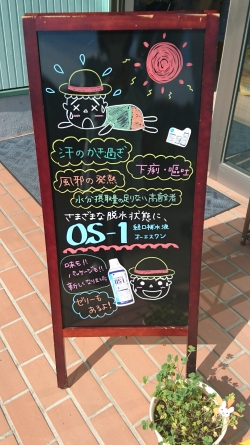 汗のかき過ぎ
下痢・嘔吐
風邪の発熱
水分摂取量の足りない高齢者
さまざまな脱水状態に、
OS-1
経口補水液
オーエスワン
味も!!
パッケージも!!
新しくなりました
OS-1
ゼリーも
あるよ!